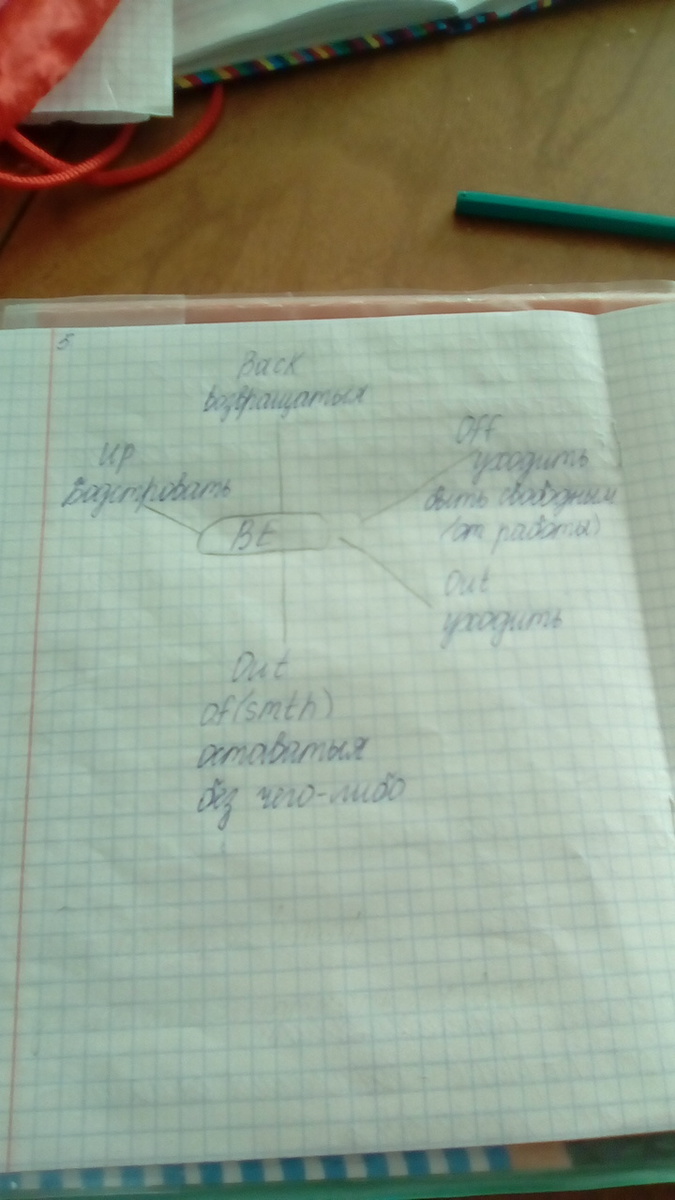 5
Back
возвращаться
Up
бодстровать
Off
уходить
быть свободным
(от работы)
BE
Out
уходить
Out
of (smth)
оставаться
без чего-либо